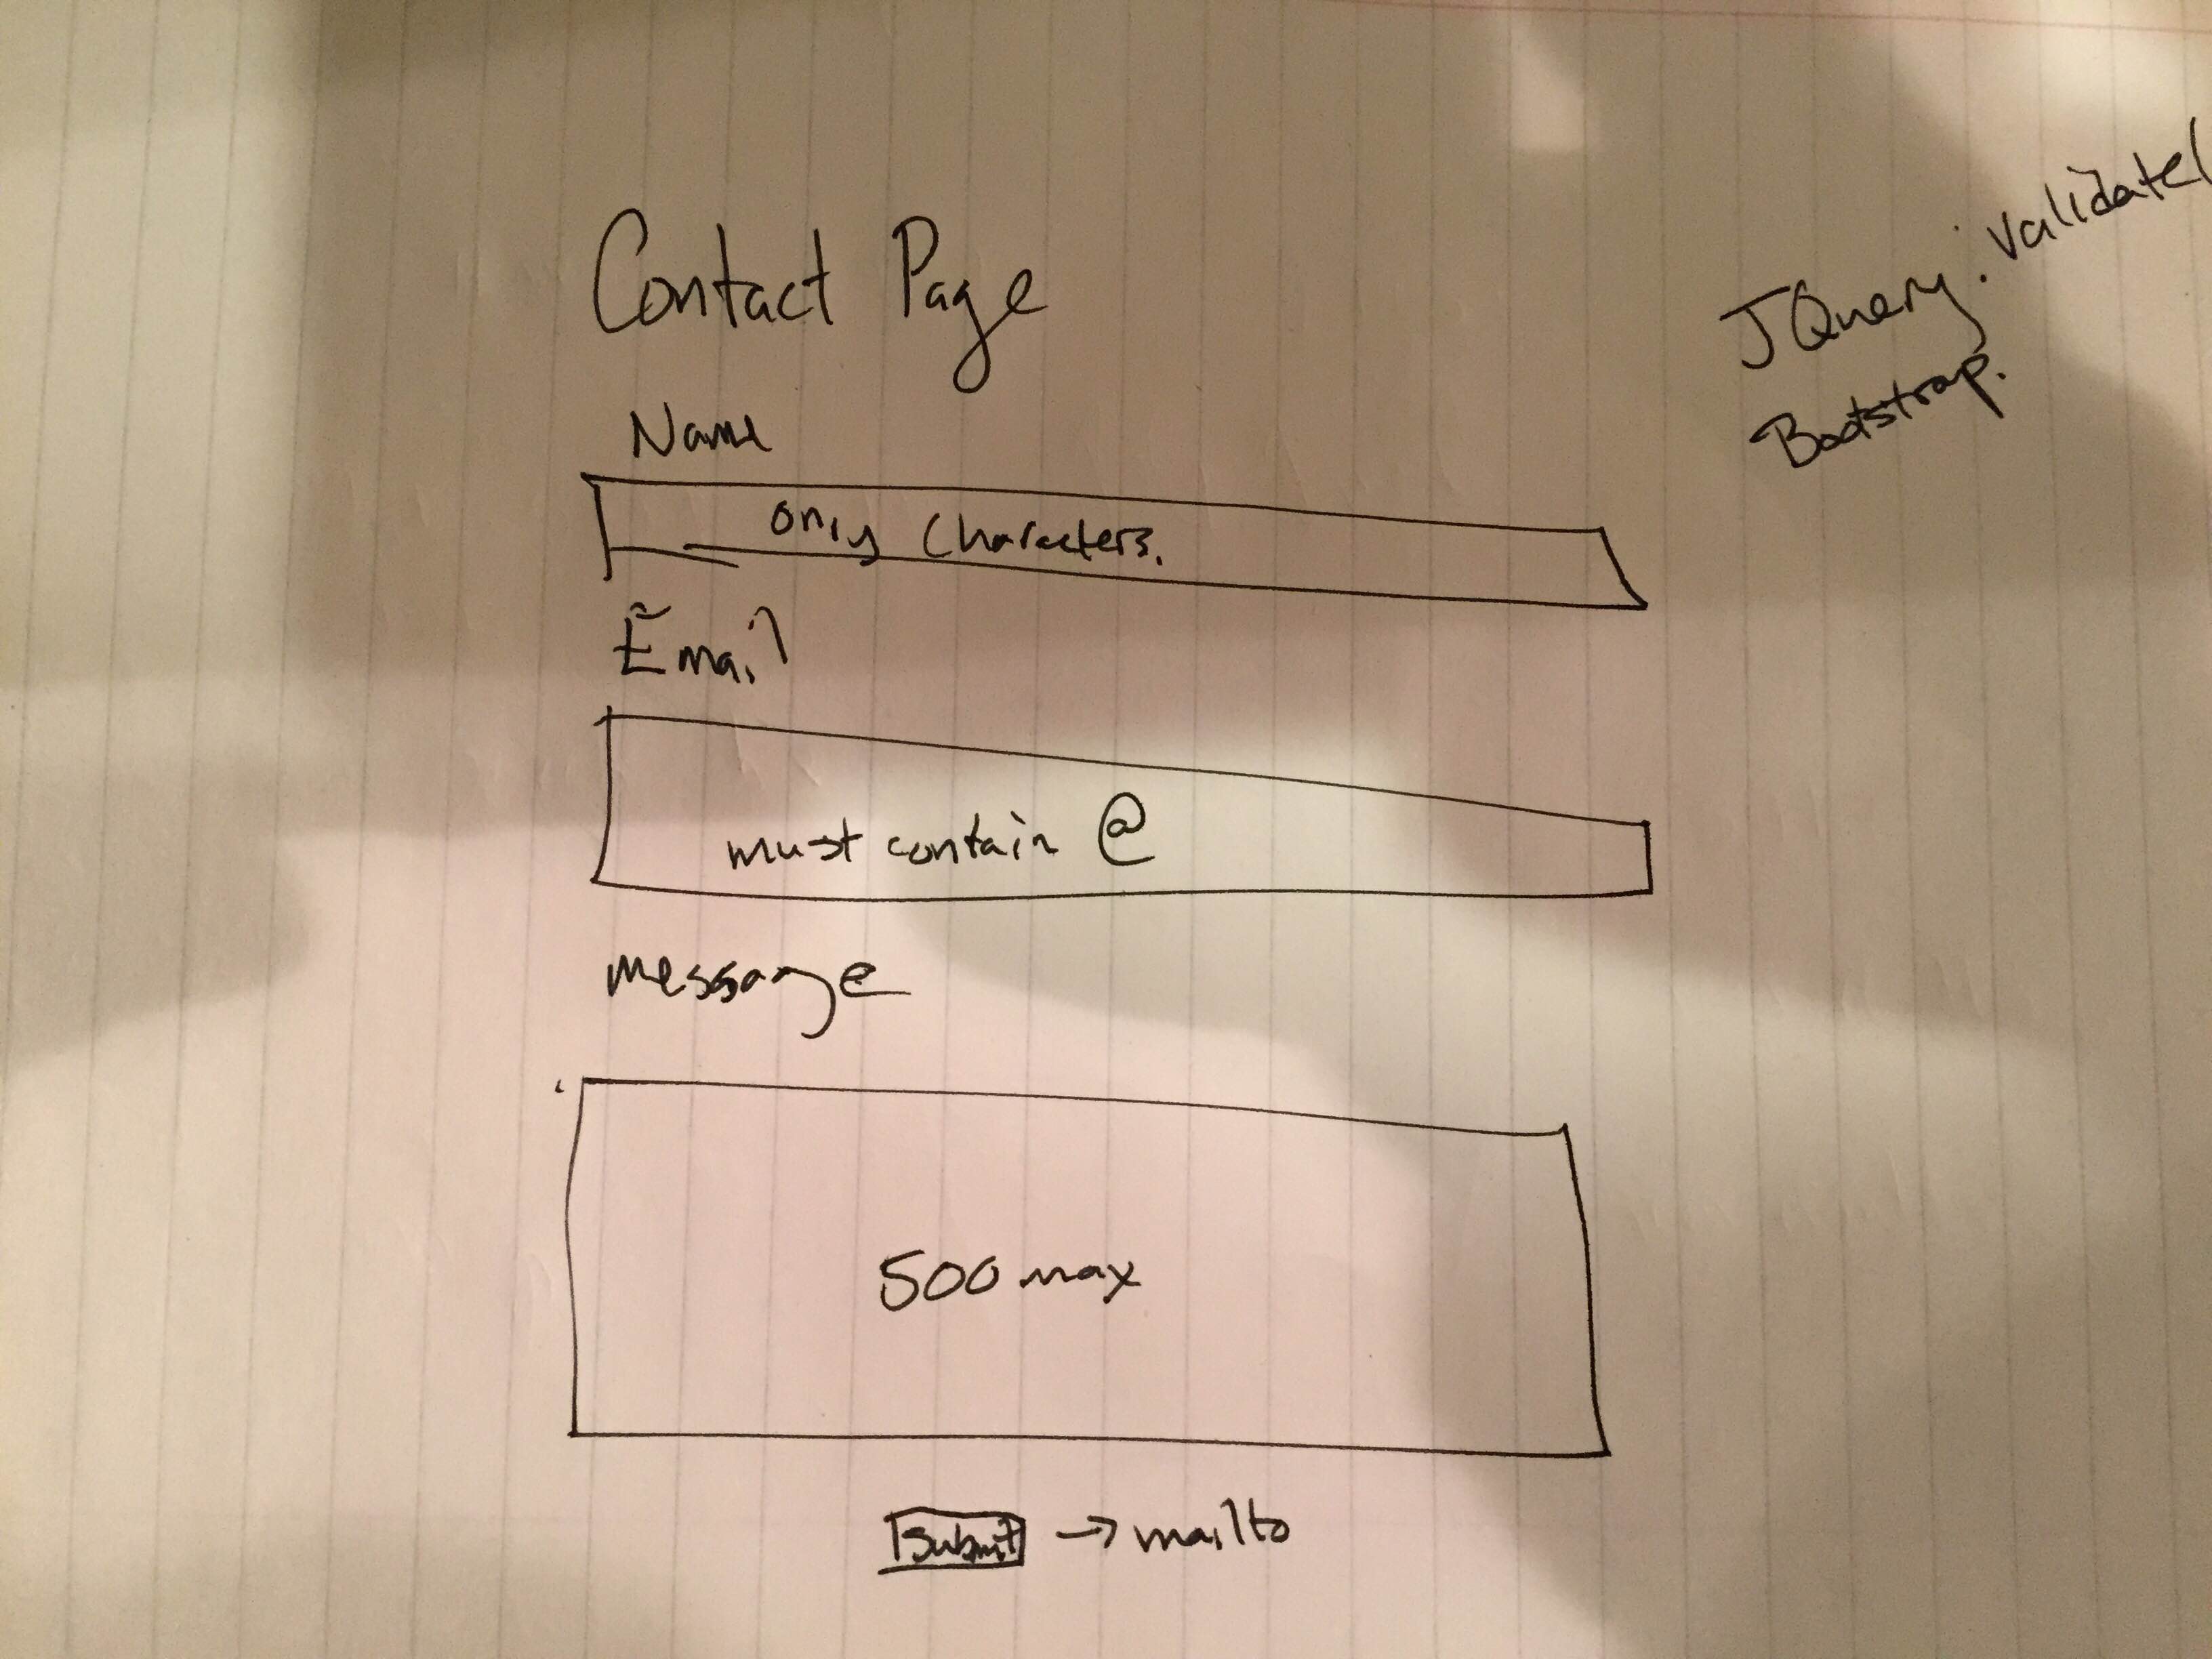 Contact Page
JQuery: validate(
Bootstrap.
Name
only Characters.
Email
must contain @
message
500 max
Submit → mailto